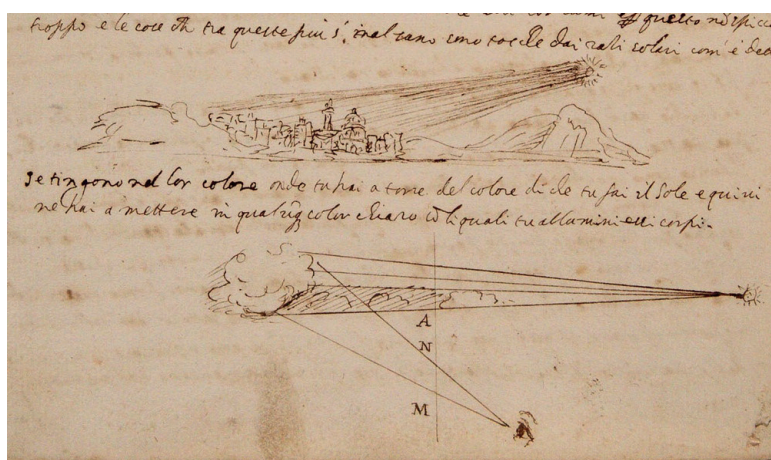 troppo e le cose ch tra queste piu s'inalzano sono tocche dai razi solari com'è
Se tingono nel lor colore onde tu hai a torre del colore di che tu fai il Sole e quivi
ne hai a mettere in qualunq color chiaro li quali tu allumini essi corpi.
A
N
M